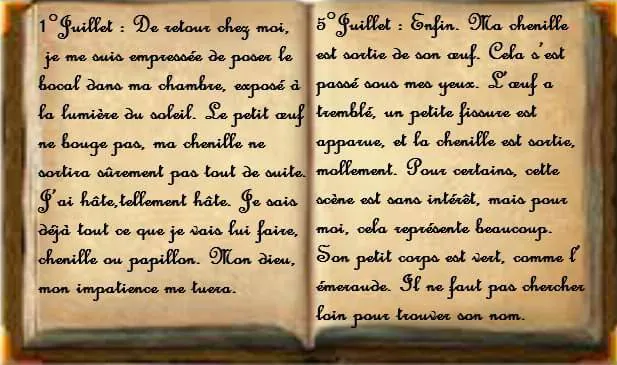 1°Juillet : De retour chez moi,
je me suis empressée de poser le
bocal dans ma chambre, exposé à
la lumière du soleil. Le petit œuf
ne bouge pas, ma chenille ne
sortira sûrement pas tout de suite.
J'ai hâte,tellement hâte. Je sais
déjà tout ce que je vais lui faire,
chenille ou papillon. Mon dieu,
mon impatience me tuera.
5°Juillet : Enfin. Ma chenille
est sortie de son œuf. Cela s'est
passé sous mes yeux. L'œuf a
tremblé, un petite fissure est
apparue, et la chenille est sortie,
mollement. Pour certains, cette
scène est sans intérêt, mais pour
moi, cela représente beaucoup.
Son petit corps est vert, comme l'
émeraude. Il ne faut pas chercher
loin pour trouver son nom.